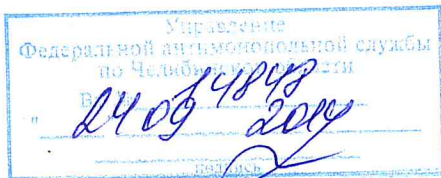 Управление
Федеральной антимонопольной службы
по Челябинской области
14848
" 24 09 2014
подпись